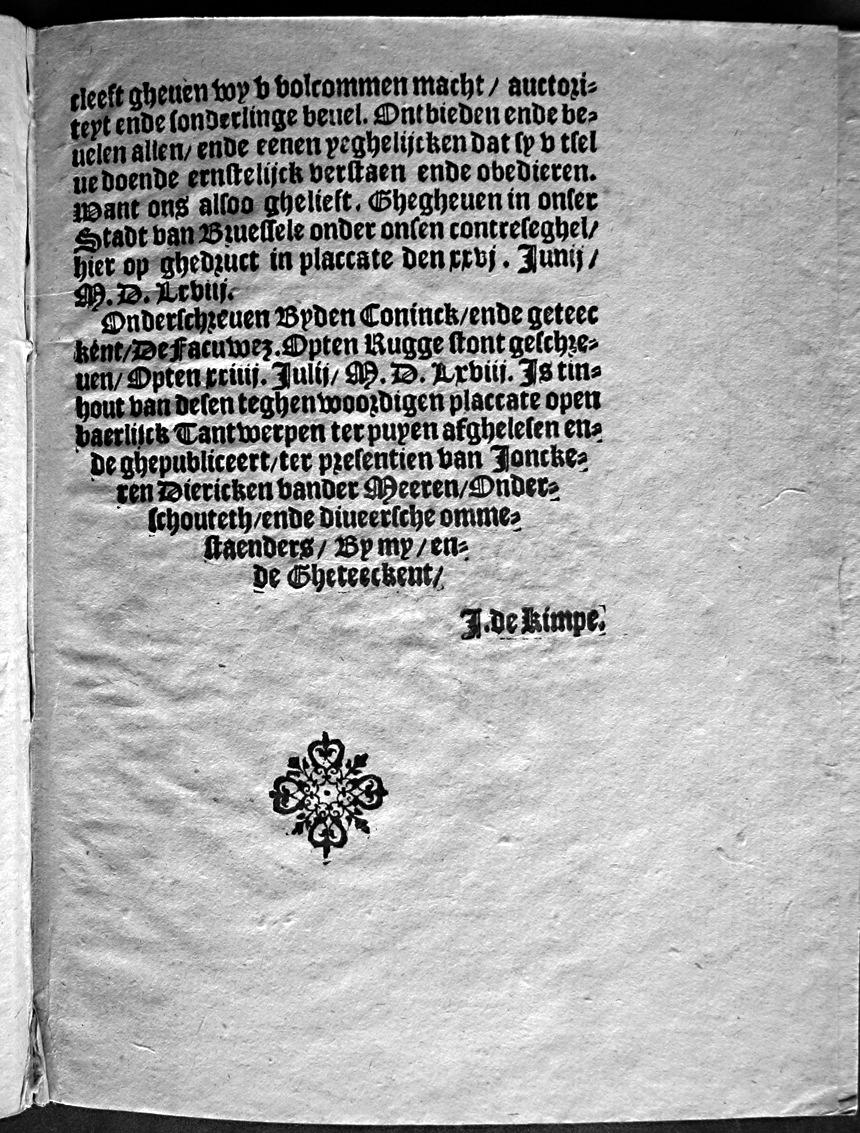 cleeft gheuen wy v volcommen macht/ auctori-
teyt ende sonderlinge beuel. Ontbieden ende be-
uelen allen/ ende eenen yeghelijcken dat sy v tsel
ue doende ernstelijck verstaen ende obedieren.
Want ons alsoo ghelieft. Ghegheuen in onser
Stadt van Bruessele onder onsen contreseghel/
hier op ghedruct in placcate den xxvj. Junij/
M. D. Lxviij.
Onderschreuen Byden Coninck/ende geteec
ként/De Facuwez. Opten Rugge stont geschre-
uen/ Opten xxiiij. Julij/ M. D. Lxviii. Is tin-
hout van desen teghenwoordigen placcate open
baerlijck Tantwerpen ter puyen afghelesen en-
de ghepubliceert/ter presentien van Joncke-
ren Diericken vander Meeren/Onder-
schouteth/ende diueersche omme-
staenders/ By my/en-
de Gheteeckent/
J. de Kimpe.